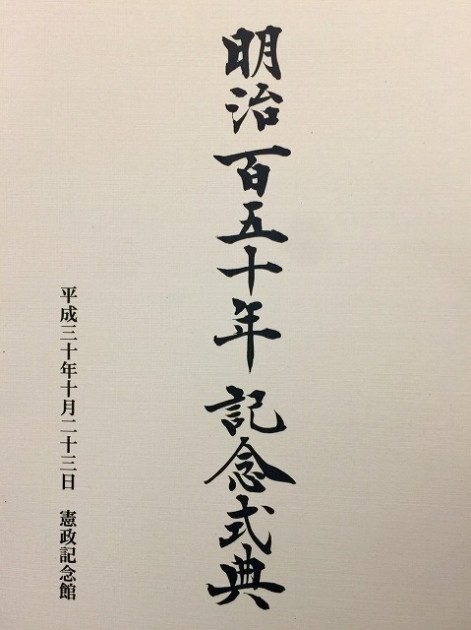 明治百五十年 記念式典
平成三十年十月二十三日 憲政記念館